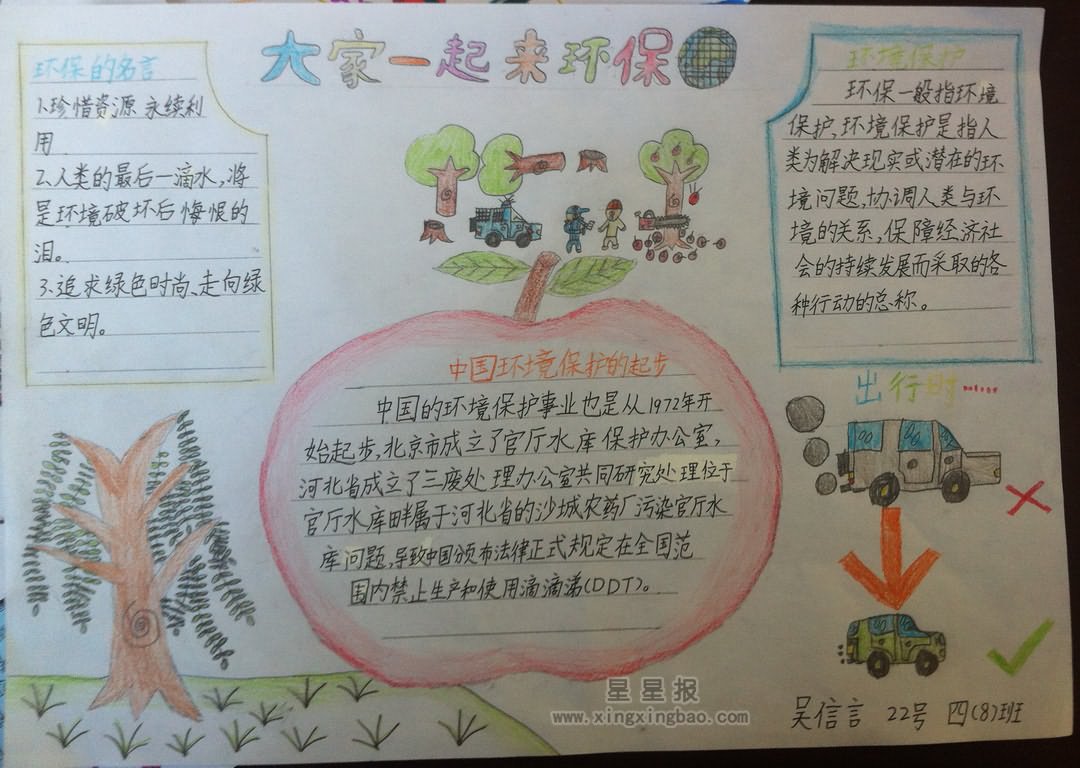 大家一起来环保
环保的名言
1.珍惜资源 永续利
用
2.人类的最后一滴水,将
是环境破坏后悔恨的
泪。
3.追求绿色时尚、走向绿
色文明。
环境保护
环保一般指环境
保护,环境保护是指人
类为解决现实或潜在的环
境问题,协调人类与环
境的关系,保障经济社
会的持续发展而采取的各
种行动的总称。
中国环境保护的起步
中国的环境保护事业也是从1972年开
始起步,北京市成立了官厅水库保护办公室,
河北省成立了三废处理办公室共同研究处理位于
官厅水库畔属于河北省的沙城农药厂污染官厅水
库问题,导致中国颁布法律正式规定在全国范
围内禁止生产和使用滴滴涕(DDT)。
出行时......
吴信言 22号 四(8)班
星星报
www.xingxingbao.com